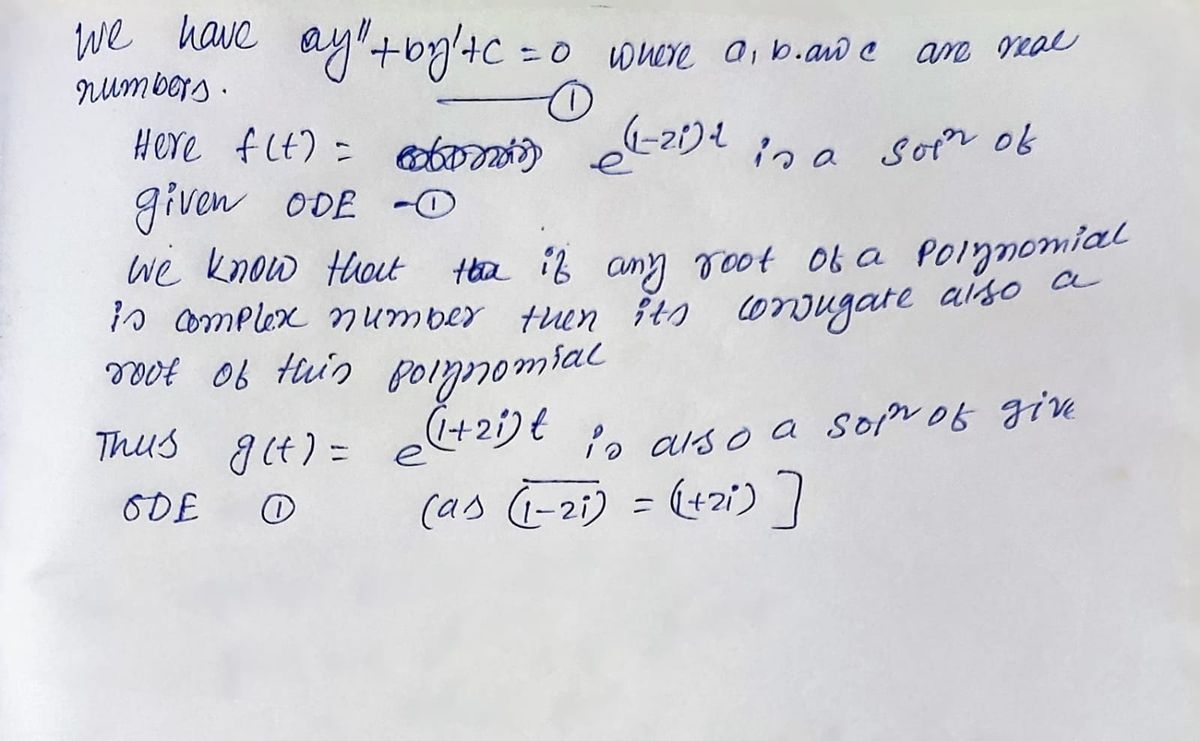 We have ay"+by'+c = 0 where a, b. and c are real
numbers.
①
Here f(t) = e^(1-2i)t is a solⁿ of
given ODE -①
We know that if any root of a polynomial
is complex number then its conjugate also a
root of this polynomial
Thus g(t) = e^(1+2i)t is also a solⁿ of give
ODE ① (as \overline{(1-2i)} = (1+2i) ]